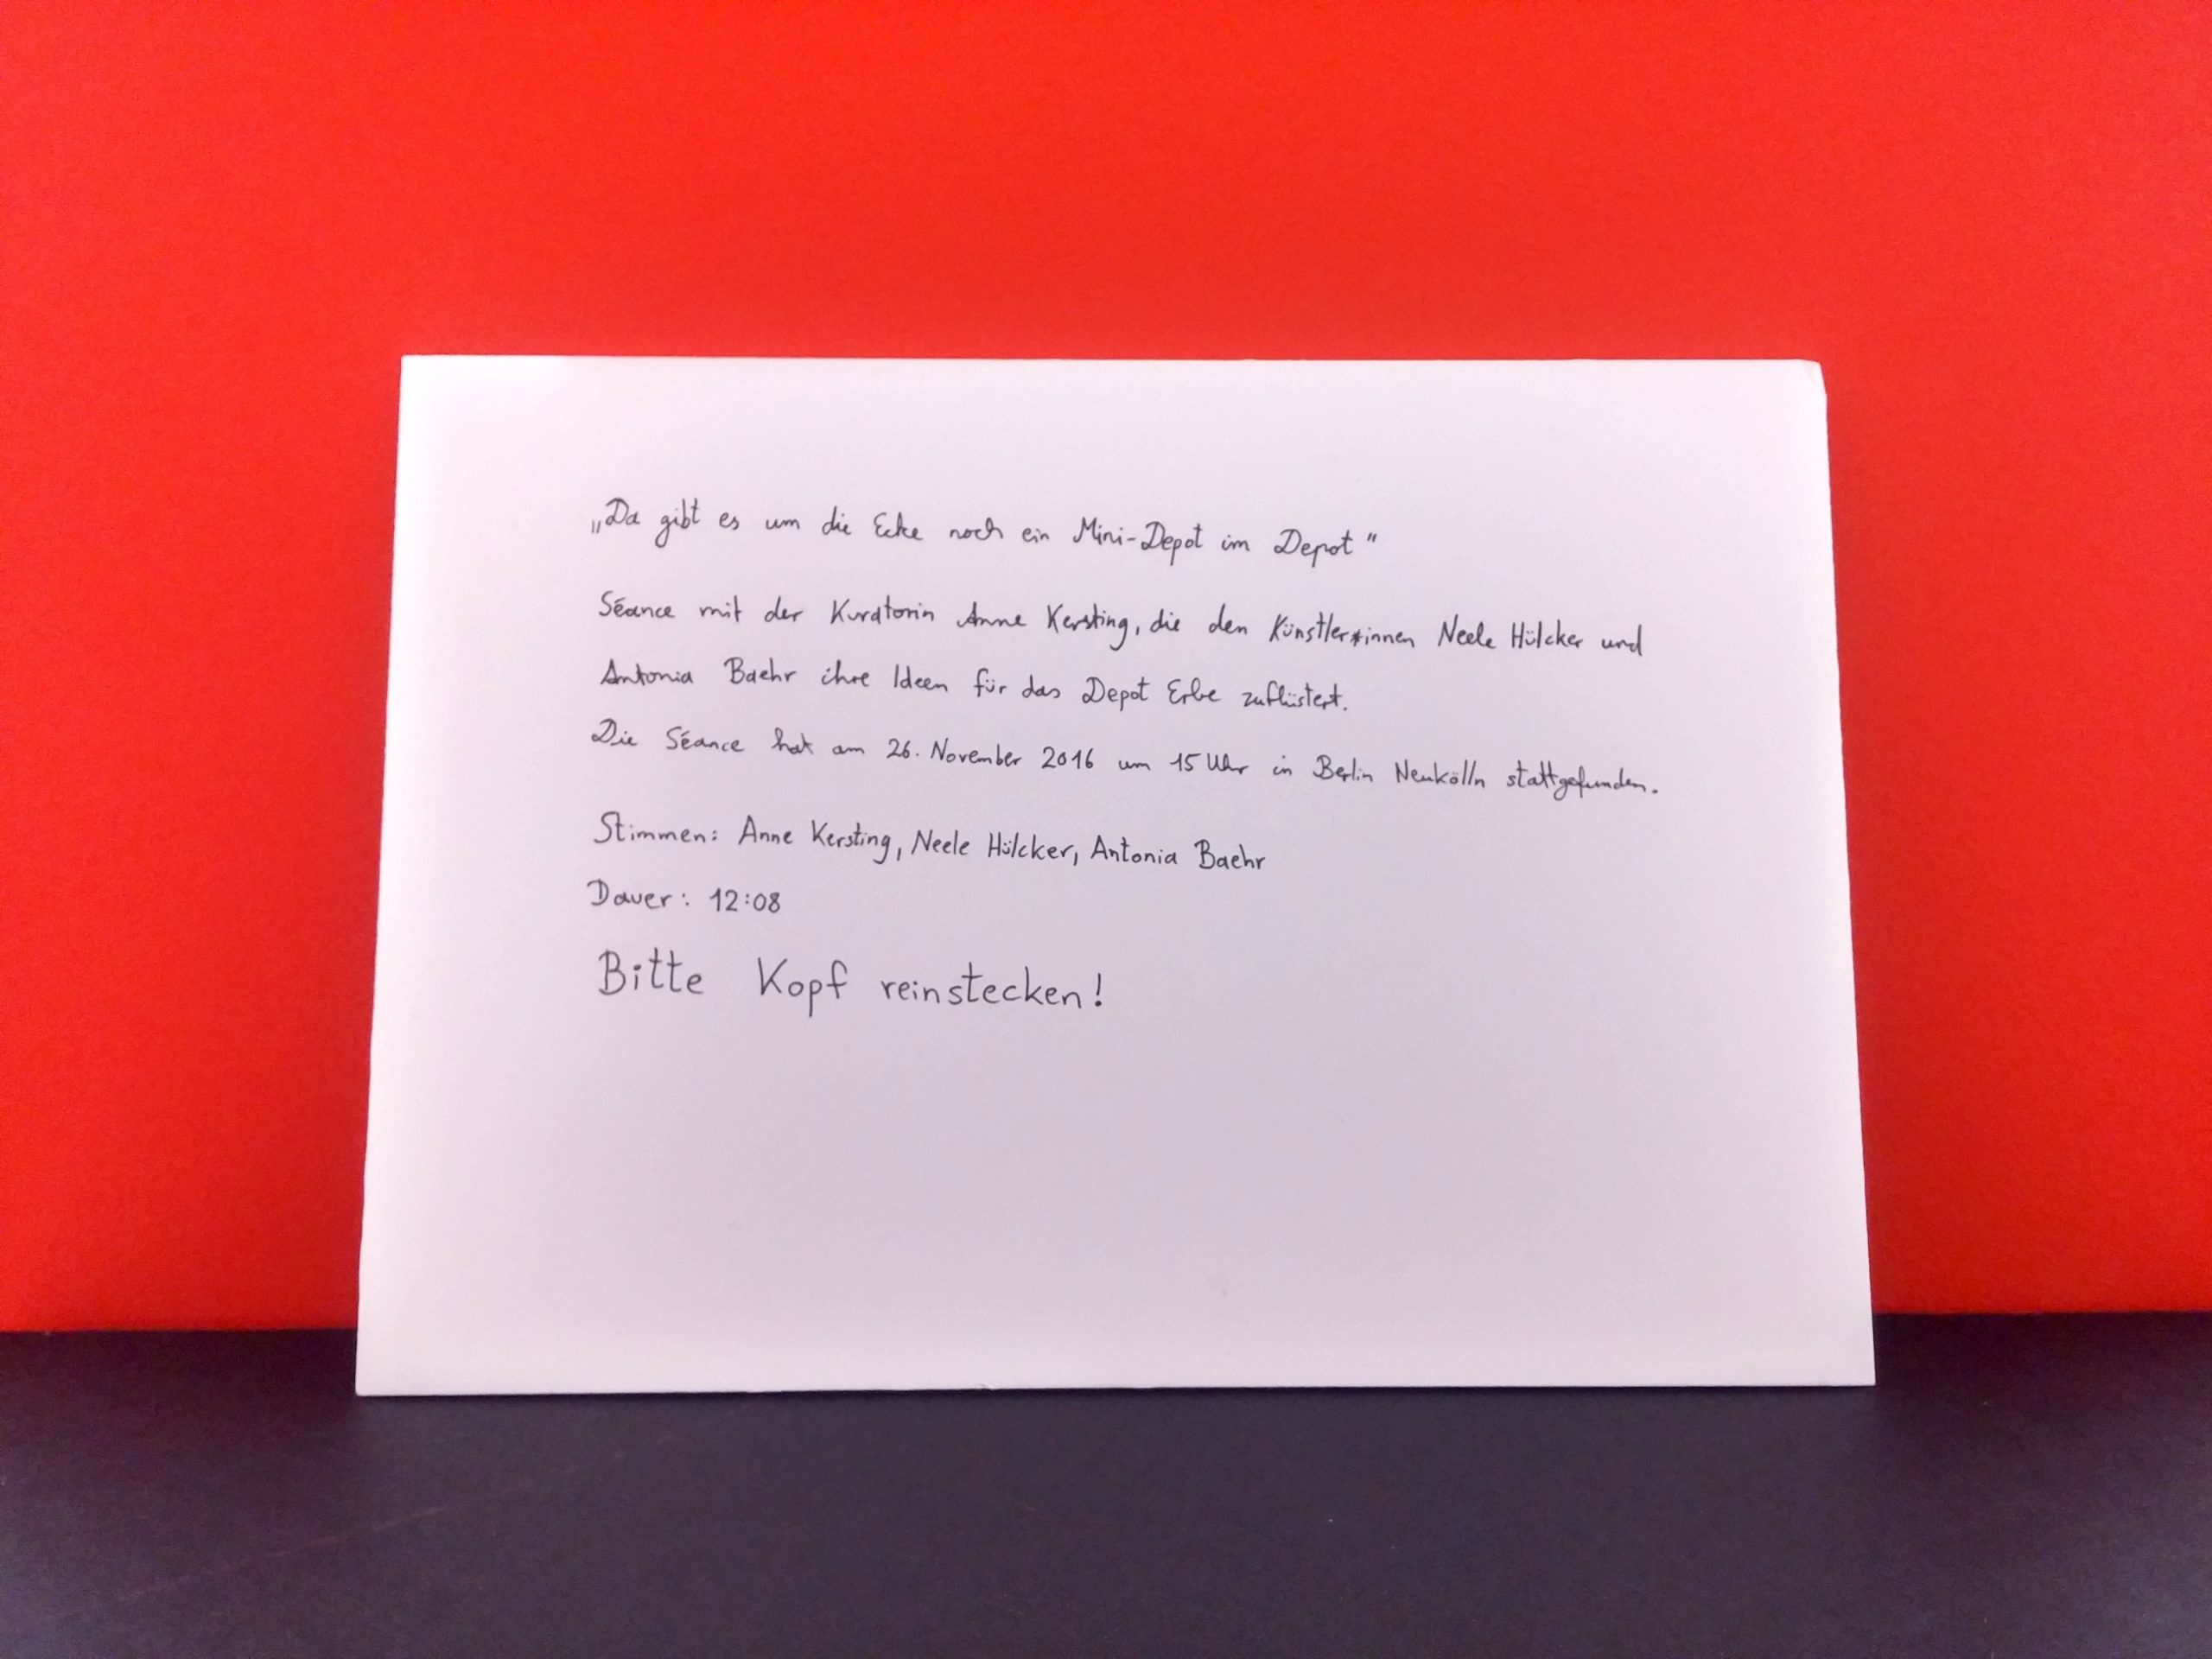 „Da gibt es um die Ecke noch ein Mini-Depot im Depot"
Séance mit der Kuratorin Anne Kersting, die den Künstler*innen Neele Hülcker und
Antonia Baehr ihre Ideen für das Depot Erbe zuflüstert.
Die Séance hat am 26. November 2016 um 15 Uhr in Berlin Neukölln stattgefunden.
Stimmen: Anne Kersting, Neele Hülcker, Antonia Baehr
Dauer: 12:08
Bitte Kopf reinstecken!